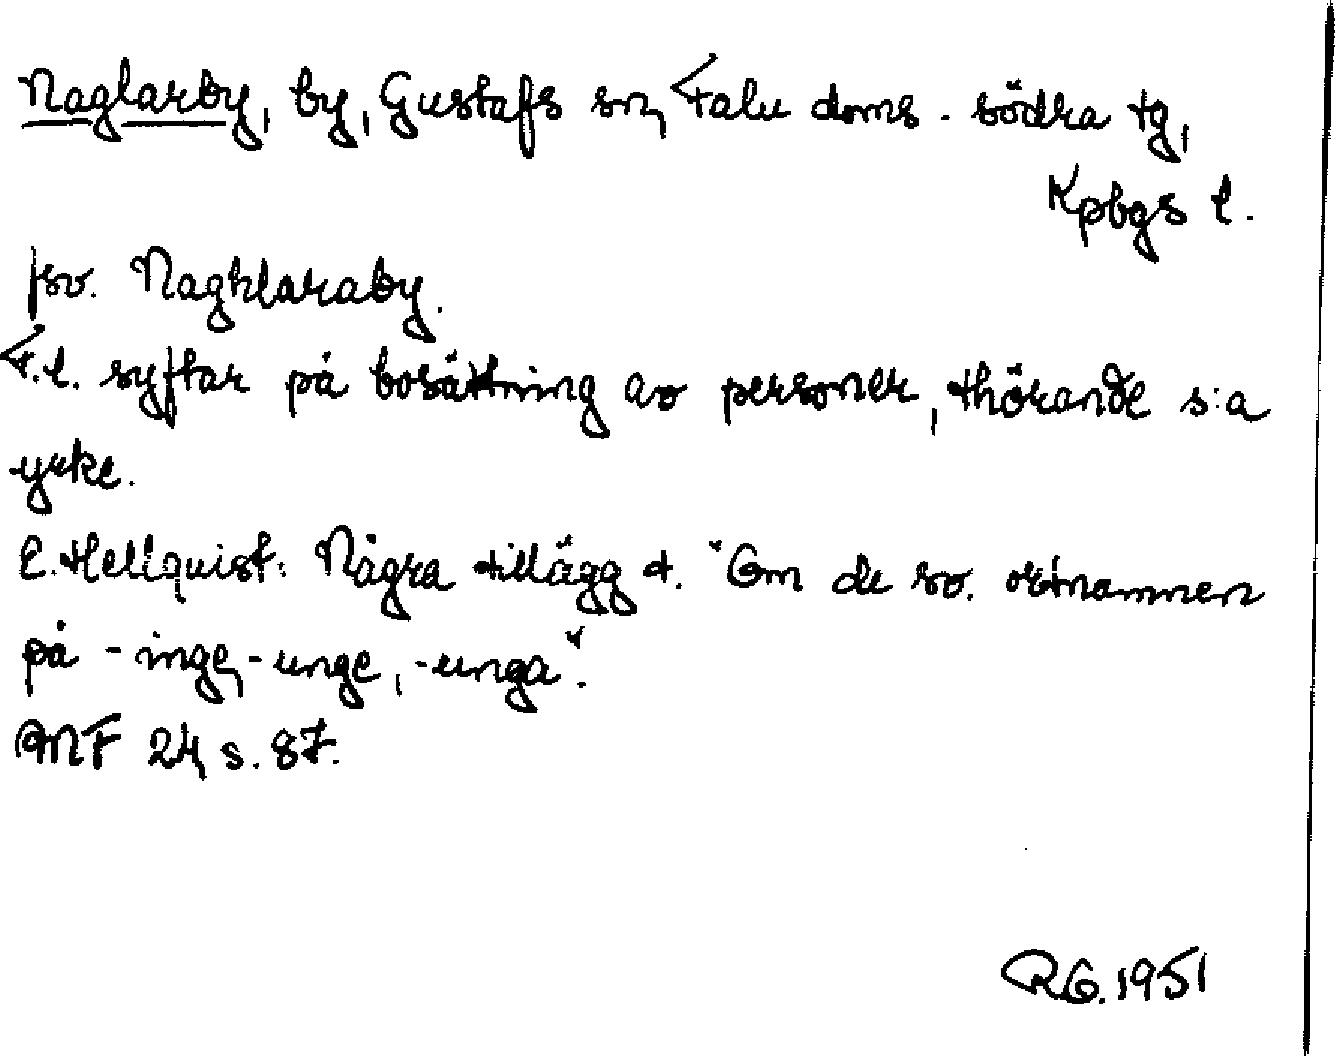 Naglarby, by, Gustafs sn, Falu doms. södra tg,
Kpbgs l.
fsv. Naghlaraby.
F.l. syftar på bosättning av personer, thörande s:a
yrke.
E. Hellquist: Några tillägg t. "Om de sv. ortnamnen
på -inge, -unge, -unga".
MF 24, s. 87.
RG. 1951